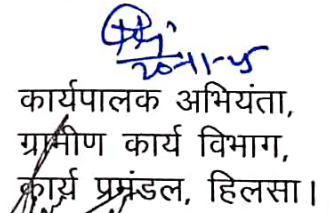 20-11-25
कार्यपालक अभियंता,
ग्रामीण कार्य विभाग,
कार्य प्रमंडल, हिलसा।